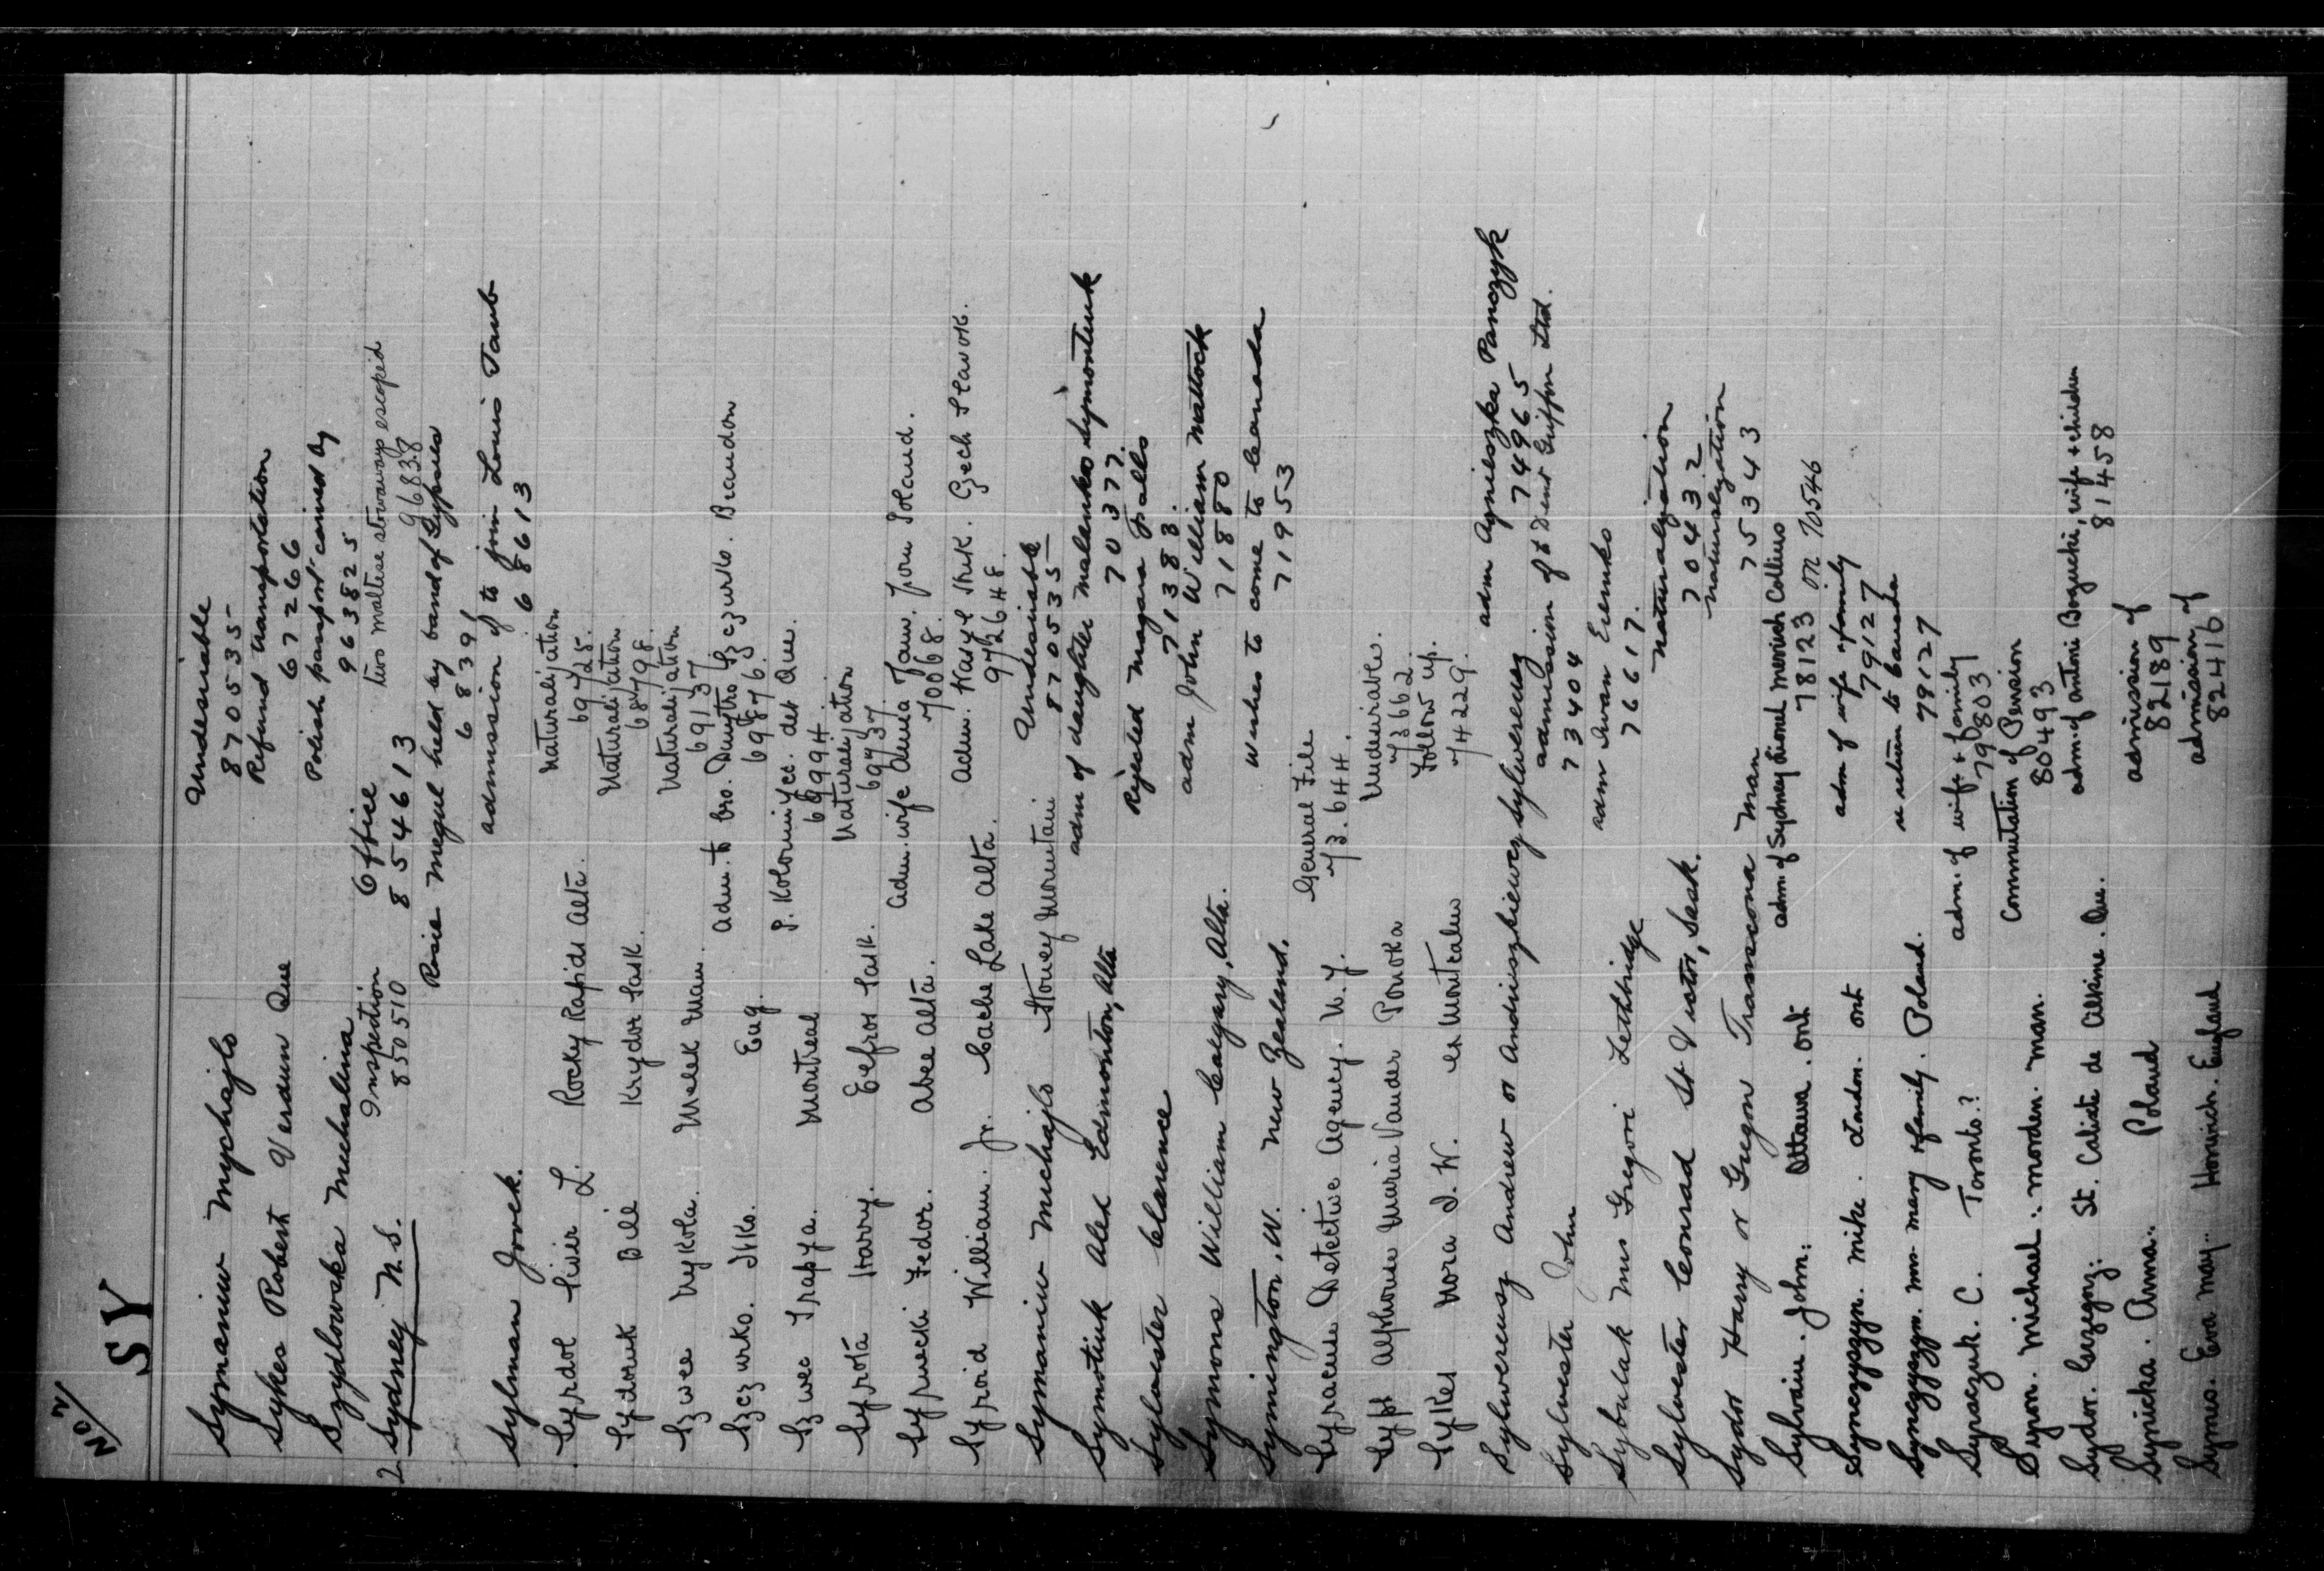 No 2/
SY
Symaniw Mychajlo Undesirable
870535
Sykes Robert Verdun Que Refund transportation
67266
Szydlowska Michalina Polish passport carried by
963825
2 Sydney N.S. Inspection Office two maltese stowaways escaped
850510 854613 96838
Rosie Megul held by band of Gypsies
68391
Sylman Jovek. admission of to join Louis Taub
68613
Syrdol Siwir L. Rocky Rapids Alta. Naturalization
69725.
Sydoruk Bill Krydor Sask. Naturalization
68798.
Szwec Mykola. Melek Man. Naturalization
69137.
Szczurko. Itko. Eng. Adm. to bro. Dmytro Szczurko. Brandon
69876.
Szwec Trapya. Montreal P. Kolomiyec. det Que.
69994.
Syrota Harry. Elfros Sask. Naturalization
69737.
Syrnecki Fedor. Abee Alta. adm. wife Anna Jaw. from Poland.
70068.
Syroid William. Jr. Cache Lake Alta. Adm. Wasyl Struk. Czech Slavok.
972648.
Symaniw Michajlo Stoney Mountain Undesirable
870535
Symotiuk Alex Edmonton, Alta adm of daughter Malenko Symontiuk
70377.
Sylvester Clarence Rejected Niagara Falls
71388.
Symons William Calgary, Alta. adm John William Mattock
71880
Symington, W. New Zealand. Wishes to come to Canada
71953
Syracuse Detective Agency. N.Y. General File
73.644.
Sypt Alphonse Maria Vander Ponoka Undesirable.
73662.
Sykes Nora I. W. ex Montcalm Follow up.
74229.
Sylwereusz Andrew or Andruszkiewcz Sylwereusz adm Agnieszka Panczyk
74965
Sylvester John admission of to Dent Griffin Ltd.
73404
Sybulak Mrs Gregori Lethbridge adm Iwan Eremko
76617.
Sylvester Conrad St Victor, Sask. Naturalization
70432
Sydor Harry or Gregon Transcona Man naturalization
75343
Sylvain. John. Ottawa. Ont adm. of Sydney Lionel Merrish Collins
78123 on 70546
Symczyszyn. Mike. London. Ont adm of wife & family
79127
Symczyszyn. Mrs. Mary & family. Poland. re return to Canada
79127
Syraczuk. C. Toronto.? adm. of wife & family
79803
Syron. Michael. Morden. Man. Commutation of Pension
80493
Sydor. Grzegorz. St. Calixte de Alkine. Que. adm. of Antoni Bogucki, wife & children
81458
Synicka. Anna. Poland admission of
82189
Symes. Eva May. Horwich. England admission of
82416